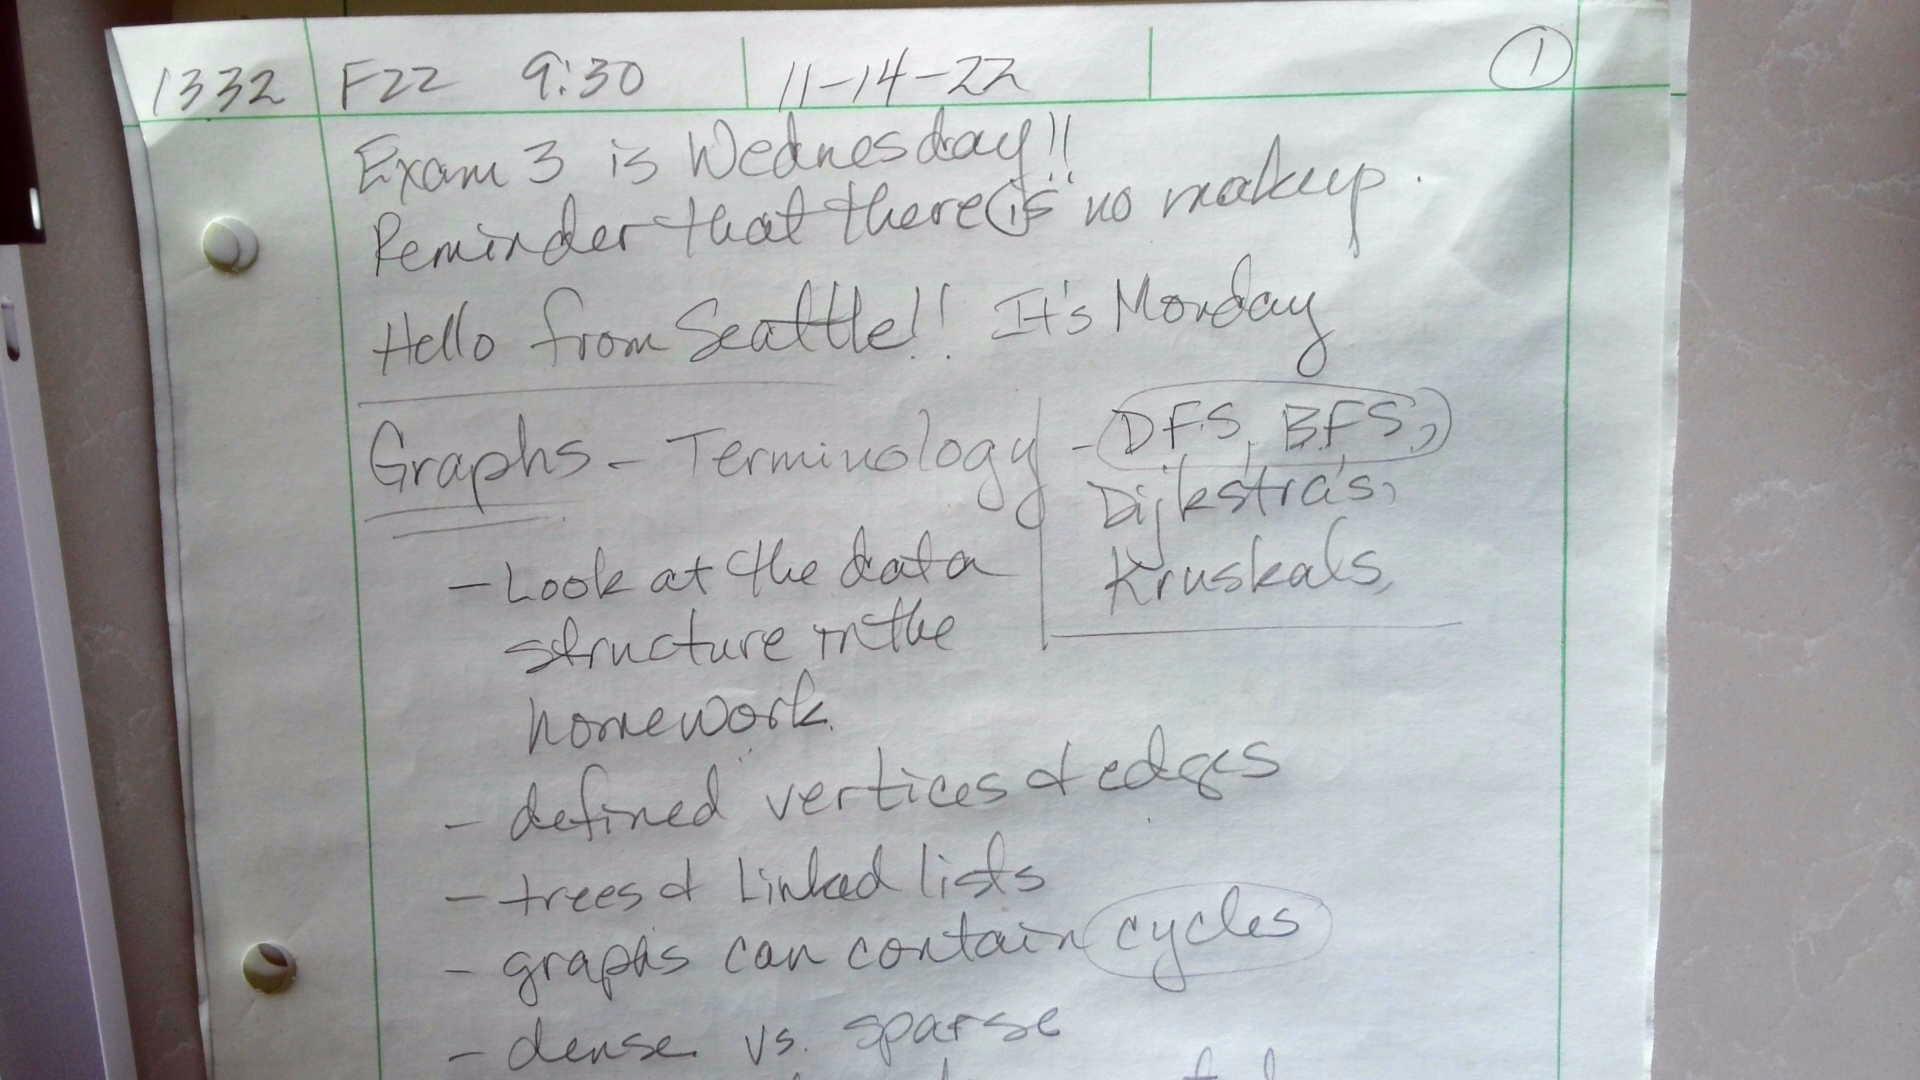 1332 F22 9:30 11-14-22 1
Exam 3 is Wednesday!!
Reminder that there is no makeup.
Hello from Seattle!! It's Monday
Graphs - Terminology - DFS, BFS,
Dijkstra's,
Kruskals,
- Look at the data
structure in the
homework.
- defined vertices & edges
- trees & Linked lists
- graphs can contain cycles
- dense vs. sparse